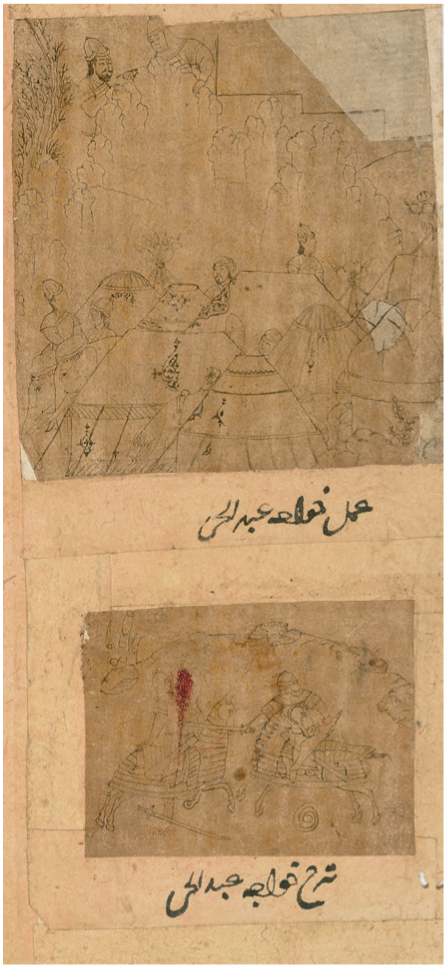 عمل خواجه عبد الحی
ترح خواجه عبد الحی